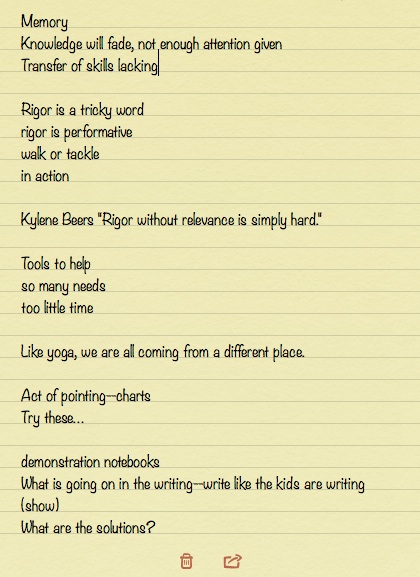 Memory
Knowledge will fade, not enough attention given
Transfer of skills lacking
Rigor is a tricky word
rigor is performative
walk or tackle
in action
Kylene Beers "Rigor without relevance is simply hard."
Tools to help
so many needs
too little time
Like yoga, we are all coming from a different place.
Act of pointing--charts
Try these...
demonstration notebooks
What is going on in the writing--write like the kids are writing
(show)
What are the solutions?